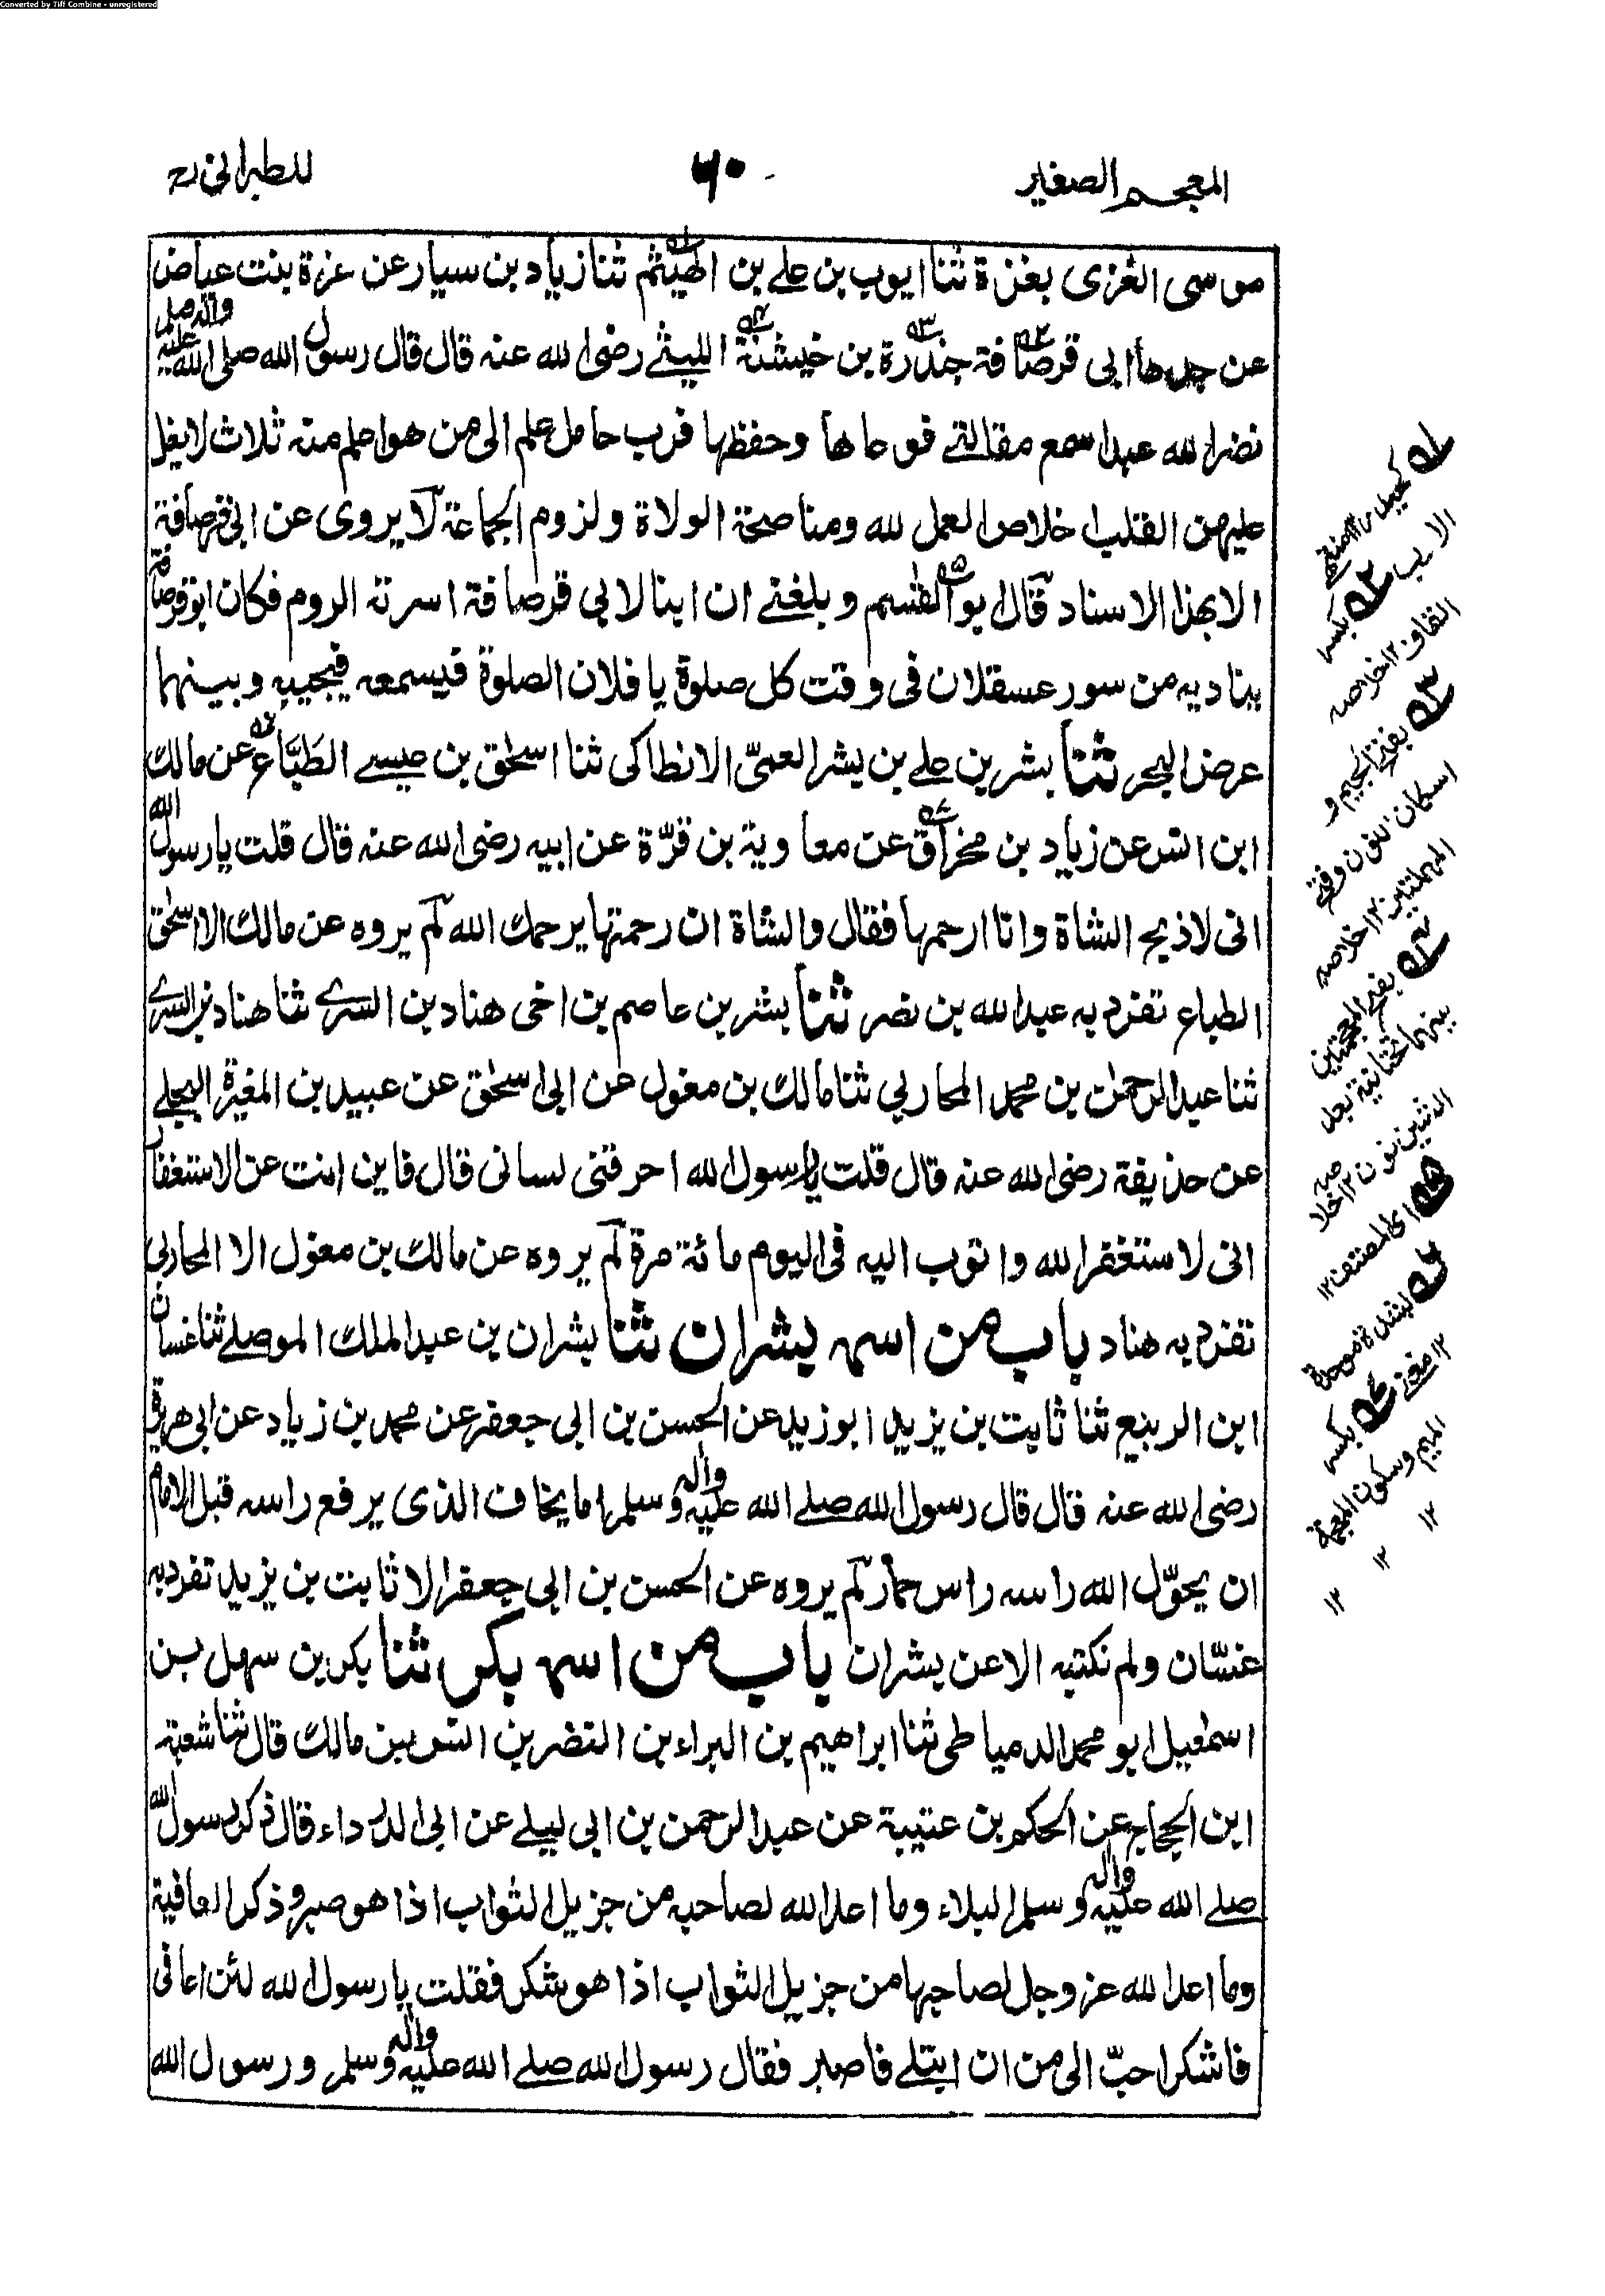 Converted by Tiff Combine - unregistered
المعجم الصغير
٦٠
للطبرانى رح
موسى الغزى بغزة ثنا ايوب بن على بن الهيثم ثنا زياد بن سيار عن عزة بنت عياض
عن جدها ابى قرصافة جندرة بن خيشنة الليثى رضى الله عنه قال قال رسول الله صلى الله عليه واله وسلم
نضر الله عبدا سمع مقالتى فوعاها وحفظها فرب حامل علم الى من هو اعلم منه ثلاث لا يغل
عليهن القلب اخلاص العمل لله ومناصحة الولاة ولزوم الجماعة لا يروى عن ابى قرصافة
الا بهذا الاسناد قال ابو القٰسم وبلغنى ان ابنا لابى قرصافة اسرته الروم فكان ابو قرصافة
يناديه من سور عسقلان فى وقت كل صلوة يا فلان الصلوة فيسمعه فيجيبه وبينهما
عرض البحر ثنا بشر بن على بن بشر العمىّ الانطاكى ثنا اسحٰق بن عيسى الطَبَّاع عن مالك
ابن انس عن زياد بن مخراق عن معاوية بن قرّة عن ابيه رضى الله عنه قال قلت يا رسول الله
انى لاذبح الشاة وانا ارحمها فقال والشاة ان رحمتها يرحمك الله لم يروه عن مالك الا اسحٰق
الطباع تفرد به عبد الله بن نصر ثنا بشر بن عاصم بن اخى هناد بن السرى ثنا هناد بن السرى
ثنا عبد الرحمٰن بن محمد المحاربى ثنا مالك بن مغول عن ابى اسحٰق عن عبيد بن المغيرة البجلى
عن حذيفة رضى الله عنه قال قلت يا رسول الله احرقتنى لسانى قال فاين انت عن الاستغفار
انى لاستغفر الله واتوب اليه فى اليوم مائة مرة لم يروه عن مالك بن مغول الا المحاربى
تفرد به هناد باب من اسمه بشران ثنا بشران بن عبد الملك الموصلى ثنا غسان
ابن الربيع ثنا ثابت بن يزيد ابو زيد عن الحسن بن ابى جعفر عن محمد بن زياد عن ابى هريرة
رضى الله عنه قال قال رسول الله صلى الله عليه واله وسلم اما يخاف الذى يرفع راسه قبل الامام
ان يحوّل الله راسه راس حمار لم يروه عن الحسن بن ابى جعفر الا ثابت بن يزيد تفرد به
غسّان ولم نكتبه الا عن بشران باب من اسمه بكر ثنا بكر بن سهل بن
اسمٰعيل ابو محمد الدمياطى ثنا ابراهيم بن البراء بن النضر بن انس بن مالك قال ثنا شعبة
ابن الحجاج عن الحكم بن عتيبة عن عبد الرحمن بن ابى ليلى عن ابى الدرداء قال ذكر رسول الله
صلى الله عليه واله وسلم البلاء وما اعد الله لصاحبه من جزيل الثواب اذا هو صبر وذكر العافية
وما اعد الله عز وجل لصاحبها من جزيل الثواب اذا هو شكر فقلت يا رسول الله لئن اعافى
فاشكر احبّ الى من ان ابتلى فاصبر فقال رسول الله صلى الله عليه واله وسلم ورسول الله
٢ بكسر
القاف ١٢ خلاصه
٣ بفتح الجيم و
اسكان النون وفتح
المهملتين ١٢ خلاصه
٤ بفتح المعجمتين
بينهما تحتانية بعد
الشين نون ١٢ خلاصه
٥ اى المصنف ١٢
٦ بشدة موحدة
١٢ مغنى ٧ بكسر
الميم وسكون المعجمة
١٢
١٢
١٢